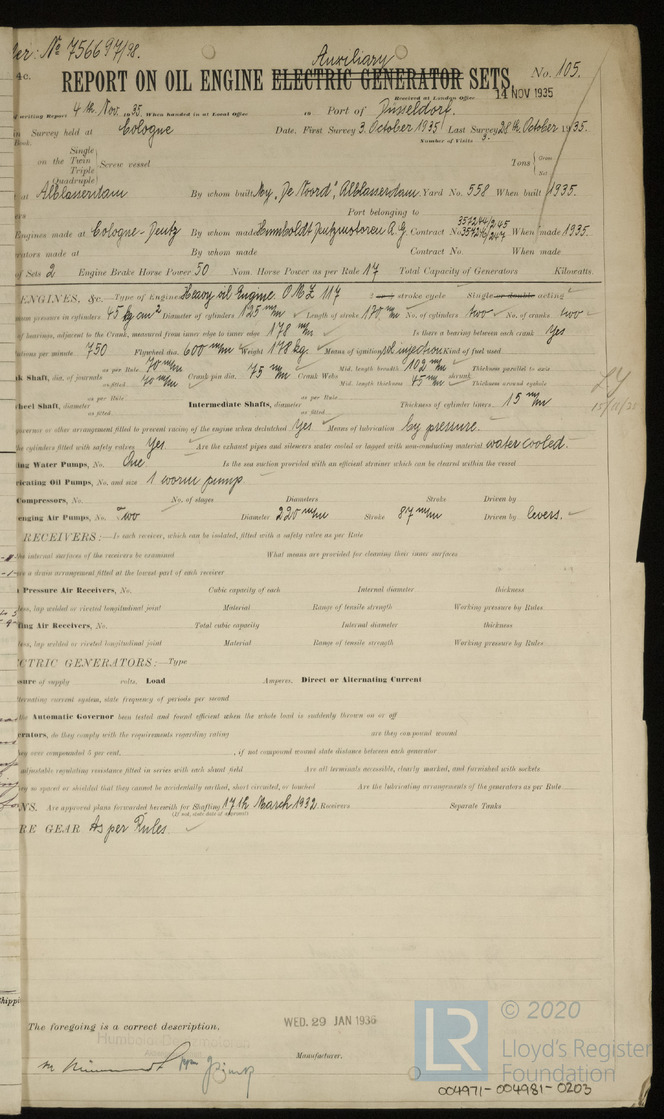 er: No 756697/98.
4c.
Auxiliary
REPORT ON OIL ENGINE ELECTRIC GENERATOR SETS.
No. 105.
Received at London Office 14 NOV 1935
f writing Report 4th Nov 1935. When handed in at Local Office 19 Port of Düsseldorf.
in Survey held at Cologne Date, First Survey 3. October 1935 Last Survey 28th October 1935.
Book. Number of Visits 3.
Single
on the Twin
Triple
Quadruple
Screw vessel
Tons Gross
Net
at Alblasserdam By whom built "De Noord", Alblasserdam Yard No. 558 When built 1935.
ers Port belonging to
Engines made at Cologne-Deutz By whom made Humboldt Deutzmotoren A.G. Contract No When made 1935.
rators made at By whom made Contract No. When made
of Sets 2 Engine Brake Horse Power 50 Nom. Horse Power as per Rule 17 Total Capacity of Generators Kilowatts.
ENGINES, &c.—Type of Engines Heavy oil Engine. OMZ 117 2 stroke cycle Single or double acting
mum pressure in cylinders 45 kg cm² Diameter of cylinders 125 m/m Length of stroke 170 m/m No. of cylinders two No. of cranks two
of bearings, adjacent to the Crank, measured from inner edge to inner edge 178 m/m Is there a bearing between each crank Yes
utions per minute 750 Flywheel dia. 600 m/m Weight 178 kg Means of ignition sol. injection Kind of fuel used
nk Shaft, dia. of journals as per Rule 70 m/m as fitted 70 m/m Crank pin dia. 75 m/m Crank Webs Mid. length breadth 102 m/m Mid. length thickness 45 m/m shrunk Thickness parallel to axis Thickness around eyehole
heel Shaft, diameter as per Rule as fitted Intermediate Shafts, diameter as per Rule as fitted Thickness of cylinder liners 15 m/m
governor or other arrangement fitted to prevent racing of the engine when declutched Yes Means of lubrication by pressure.
he cylinders fitted with safety valves Yes. Are the exhaust pipes and silencers water cooled or lagged with non-conducting material water cooled.
ing Water Pumps, No. One Is the sea suction provided with an efficient strainer which can be cleared within the vessel
ricating Oil Pumps, No. and size 1 worm pump
Compressors, No. No. of stages Diameters Stroke Driven by
enging Air Pumps, No. Two Diameter 220 m/m Stroke 87 m/m Driven by levers.
RECEIVERS:—Is each receiver, which can be isolated, fitted with a safety valve as per Rule
the internal surfaces of the receivers be examined What means are provided for cleaning their inner surfaces
e a drain arrangement fitted at the lowest part of each receiver
Pressure Air Receivers, No. Cubic capacity of each Internal diameter thickness
less, lap welded or riveted longitudinal joint Material Range of tensile strength Working pressure by Rules
ing Air Receivers, No. Total cubic capacity Internal diameter thickness
less, lap welded or riveted longitudinal joint Material Range of tensile strength Working pressure by Rules
CTRIC GENERATORS:—Type
sure of supply volts. Load Amperes. Direct or Alternating Current
ternating current system, state frequency of periods per second
the Automatic Governor been tested and found efficient when the whole load is suddenly thrown on or off
erators, do they comply with the requirements regarding rating are they compound wound
ey over compounded 5 per cent. , if not compound wound state distance between each generator
adjustable regulating resistance fitted in series with each shunt field Are all terminals accessible, clearly marked, and furnished with sockets
ey so spaced or shielded that they cannot be accidentally earthed, short circuited, or touched Are the lubricating arrangements of the generators as per Rule
NS. Are approved plans forwarded herewith for Shafting 17th March 1932. Receivers Separate Tanks
(If not, state date of approval)
RE GEAR As per Rules.
hippi
The foregoing is a correct description,
WED. 29 JAN 1936
Manufacturer.
LR
© 2020
Lloyd's Register
Foundation
004971-004981-0203